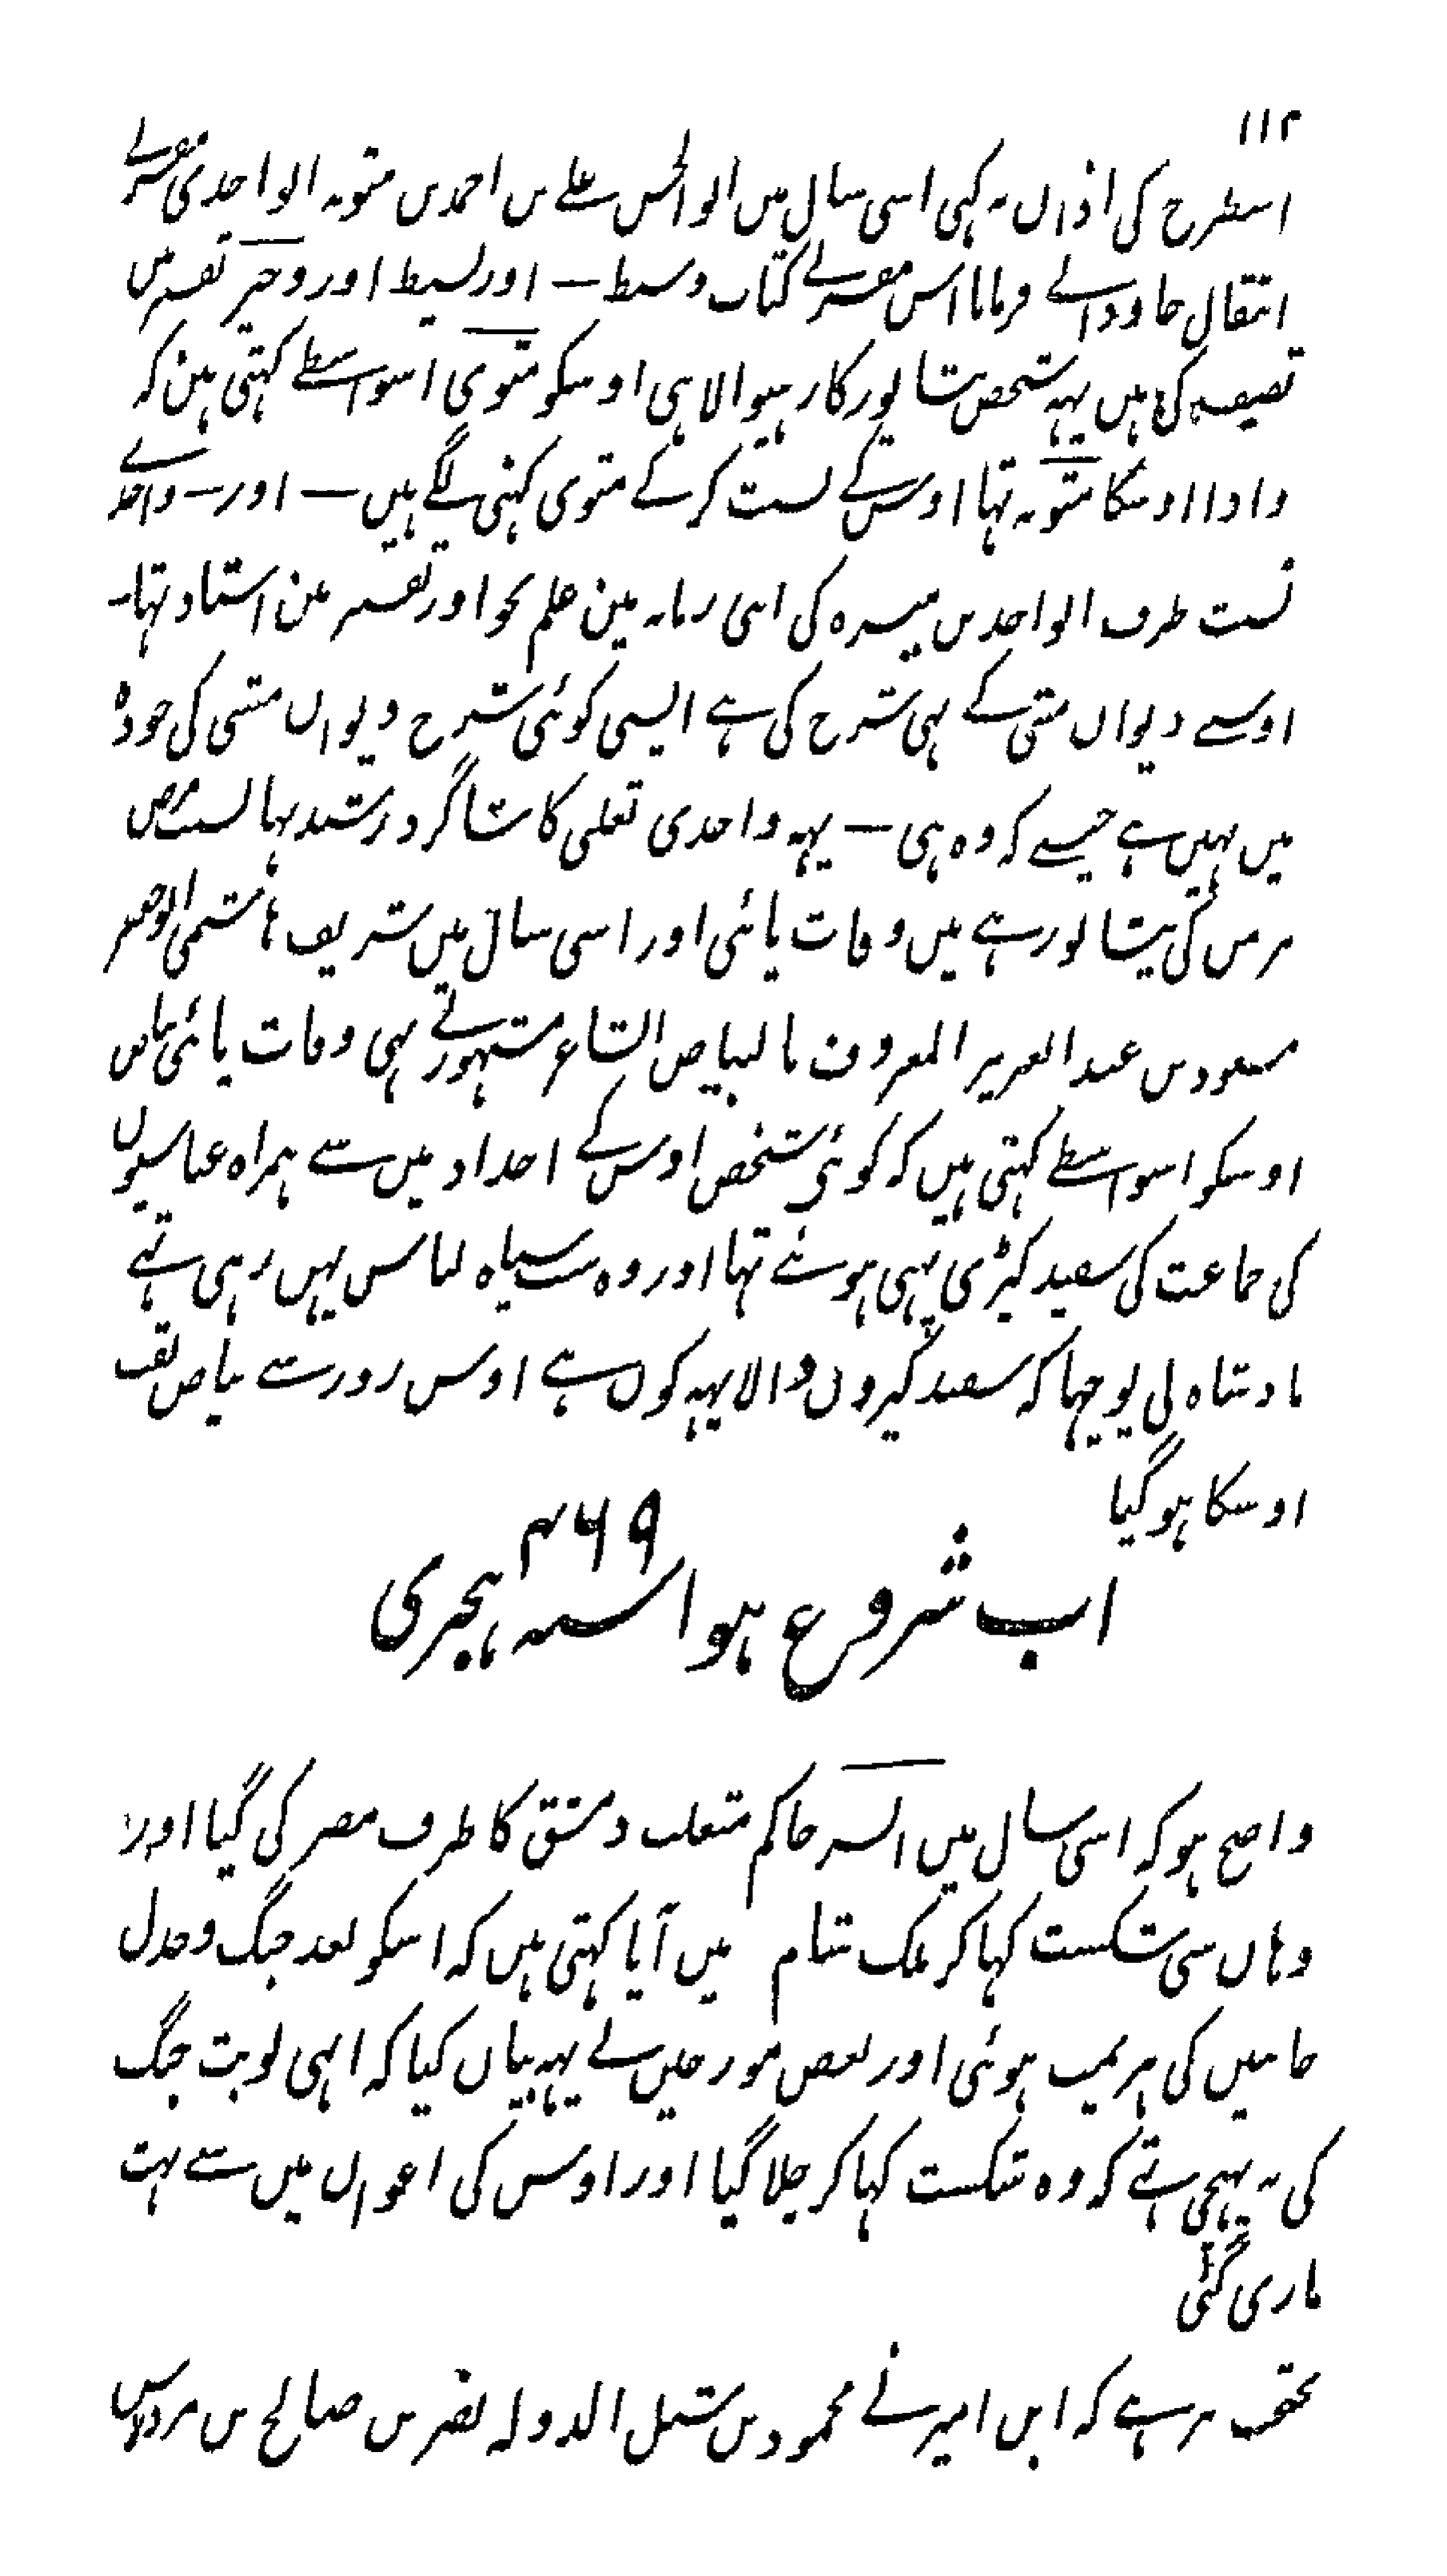 ۱۱۲
اسطرح کی اذان نہ کہی اسی سال میں ابوالحسن علے بن احمد بن متویہ الواحدی مفسر نے
انتقال جاودانے فرمایا اس مفسر نے کتاب وسیط – اور بسیط اور وجیز تفسیر میں
تصنیف کی ہیں یہہ شخص نیشاپور کا رہنیوالا ہی اوسکو متوی اسواسطے کہتی ہین کہ
دادا اوسکا متویہ تہا اوس کے نسبت کر کے متوی کہنی لگے ہیں – اور – واحدے
نسبت طرف الواحد بن میسرہ کی اسی زمانہ مین علم نحو اور تفسیر مین استاد تہا –
اوسنے دیوان متنبی کے بہی شرح کی ہے ایسی کوئی شرح دیوان متنبی کی جودۃ
میں نہیں ہے جیسے کہ وہ ہی – یہہ واحدی ثعلبی کا شاگرد رشید تہا بسبب مرض
مزمن کی نیشاپور ہے میں وفات پائی اور اسی سال میں شریف ہاشمی ابو جعفر
مسعود بن عبد العزیز المعروف بالبیاض الشاعر مشہور نے بہی وفات پائی بیاض
اوسکو اسواسطے کہتی ہیں کہ کوئی شخص اوس کے اجداد میں سے ہمراہ عباسیوں
کی جماعت کی سفید کپڑی پہنی ہوئے تہا اور وہ سب سیاہ لباس پہن رہی تہے
بادشاہ نی پوچہا کہ سفید کپڑوں والا یہہ کون ہے اوس روز سے بیاض لقب
اوسکا ہو گیا
اب شروع ہوا سنہ ۴۶۹ ہجری
واضح ہو کہ اسی سال میں اتسز حاکم متغلب دمشق کا طرف مصر کی گیا اور
وہاں سی شکست کہا کر ملک شام میں آیا کہتی ہیں کہ اسکو بعد جنگ و جدل
جانبین کی ہزیمت ہوئی اور بعض مورخین نے یہہ بیان کیا کہ ابہی نوبت جنگ
کی نہ پہنچی تہے کہ وہ شکست کہا کر چلا گیا اور اوس کی اعوان میں سے بہت
ماری گئی
تعجب پر ہے کہ ابن امیر نے محمود بن شبل الدولہ نصر بن صالح بن مرداس